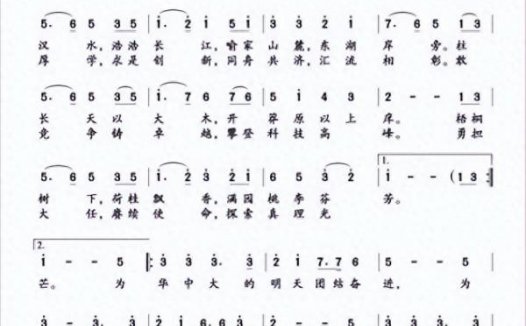 5. 6 5 3 5 | 1. 2 1 5 1 | 3 2 3 2 1 | 7. 6 5 1 3 |
汉 水,浩浩 长 江,喻家 山 麓,东 湖 岸 旁。柱
厚 学,求是 创 新,同舟 共 济,汇流 相 彰。敢
5. 6 5 3 5 | 1. 7 6 7 6 | 5 1 4 3 | 2 - - 1 3 |
长 天 以 大 木,开 莽 原 以 上 庠。梧桐
竞 争 铸 卓 越,攀登 科 技 高 峰。勇担
1.
5. 6 5 3 5 | 1. 2 3 2 3 | 6 5 3 2 | 1 - - (1 3 :|
树 下,荷桂 飘 香,满园 桃 李 芬 芳。
大 任,赓续 使 命,探索 真 理 光
2.
1 - - 5 |: 3 3 3. 3 | 2 1 7. 7 6 | 5 - - 5 |
芒。 为 华 中 大 的 明 天 团结 奋 进, 为